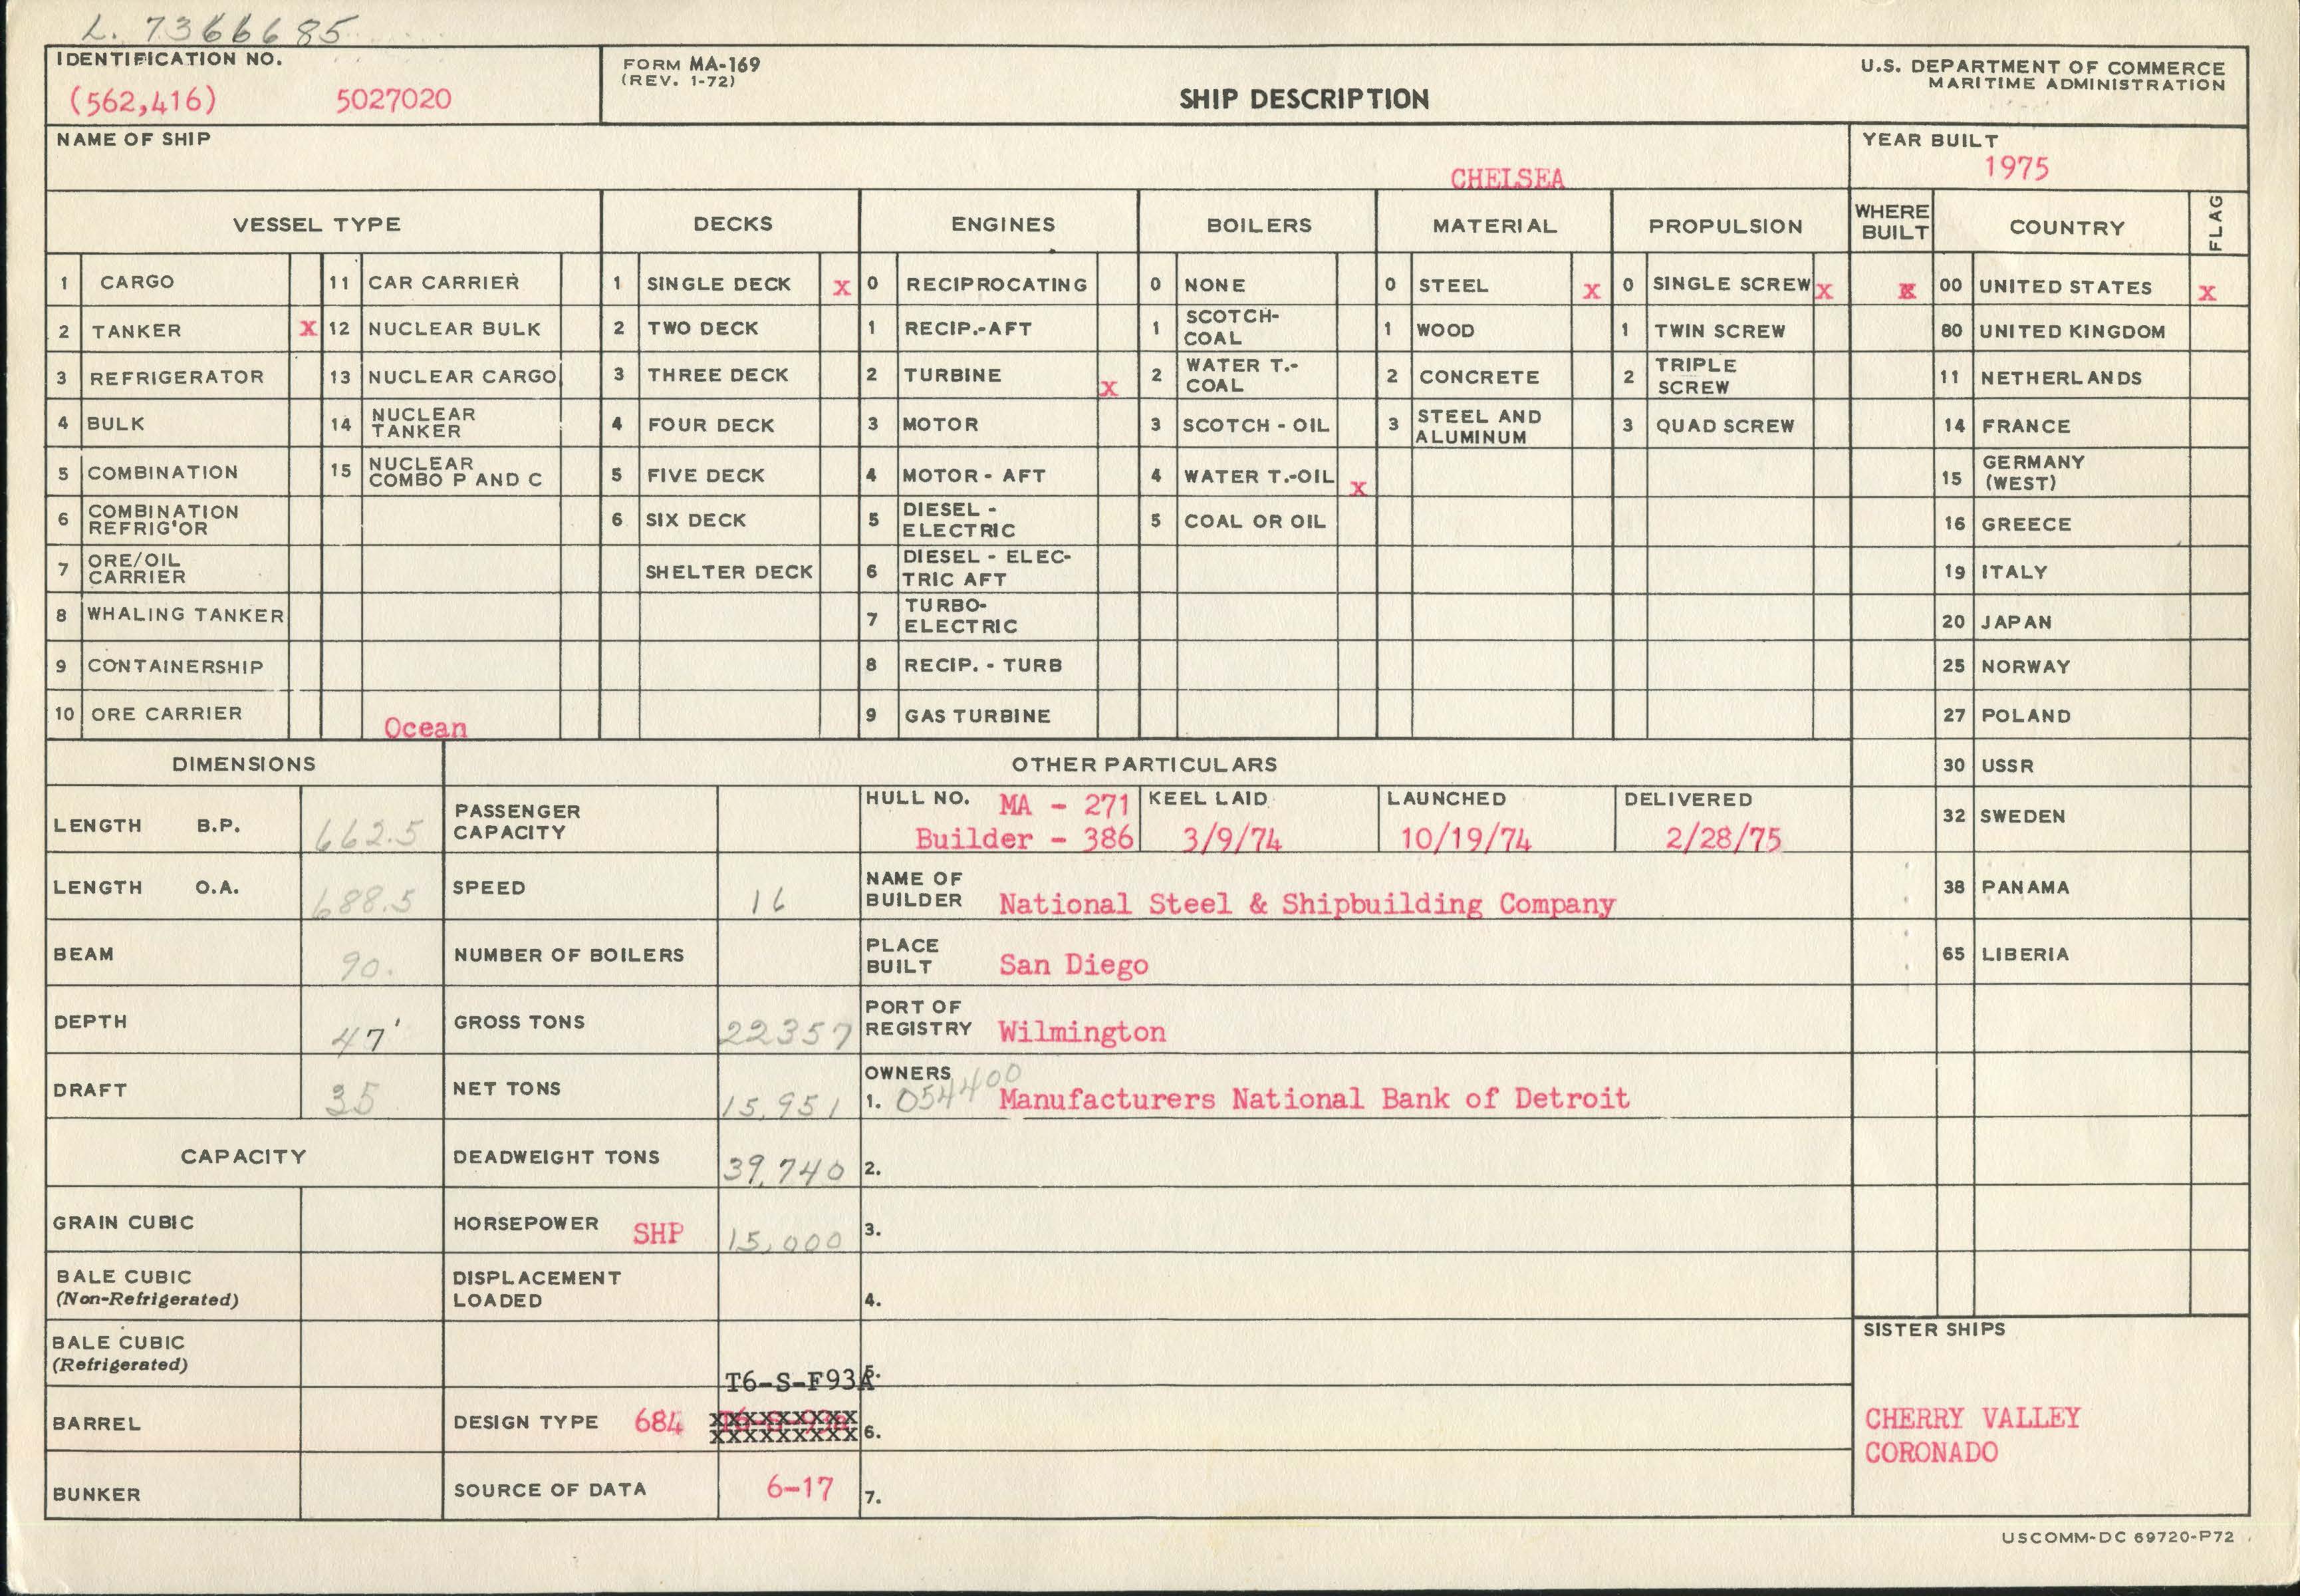 L. 7366685
IDENTIFICATION NO.
(562,416) 5027020
FORM MA-169
(REV. 1-72)
SHIP DESCRIPTION
U.S. DEPARTMENT OF COMMERCE
MARITIME ADMINISTRATION
NAME OF SHIP
CHELSEA
YEAR BUILT
1975
VESSEL TYPE DECKS ENGINES BOILERS MATERIAL PROPULSION WHERE BUILT COUNTRY FLAG
1 CARGO 11 CAR CARRIER 1 SINGLE DECK X 0 RECIPROCATING 0 NONE 0 STEEL X 0 SINGLE SCREW X X 00 UNITED STATES X
2 TANKER X 12 NUCLEAR BULK 2 TWO DECK 1 RECIP.-AFT 1 SCOTCH-COAL 1 WOOD 1 TWIN SCREW 80 UNITED KINGDOM
3 REFRIGERATOR 13 NUCLEAR CARGO 3 THREE DECK 2 TURBINE X 2 WATER T.-COAL 2 CONCRETE 2 TRIPLE SCREW 11 NETHERLANDS
4 BULK 14 NUCLEAR TANKER 4 FOUR DECK 3 MOTOR 3 SCOTCH - OIL 3 STEEL AND ALUMINUM 3 QUAD SCREW 14 FRANCE
5 COMBINATION 15 NUCLEAR COMBO P AND C 5 FIVE DECK 4 MOTOR - AFT 4 WATER T.-OIL X 15 GERMANY (WEST)
6 COMBINATION REFRIG'OR 6 SIX DECK 5 DIESEL - ELECTRIC 5 COAL OR OIL 16 GREECE
7 ORE/OIL CARRIER SHELTER DECK 6 DIESEL - ELEC-TRIC AFT 19 ITALY
8 WHALING TANKER 7 TURBO-ELECTRIC 20 JAPAN
9 CONTAINERSHIP 8 RECIP. - TURB 25 NORWAY
10 ORE CARRIER Ocean 9 GAS TURBINE 27 POLAND
DIMENSIONS OTHER PARTICULARS 30 USSR
LENGTH B.P. 662.5 PASSENGER CAPACITY HULL NO. MA - 271 Builder - 386 KEEL LAID 3/9/74 LAUNCHED 10/19/74 DELIVERED 2/28/75 32 SWEDEN
LENGTH O.A. 688.5 SPEED 16 NAME OF BUILDER National Steel & Shipbuilding Company 38 PANAMA
BEAM 90. NUMBER OF BOILERS PLACE BUILT San Diego 65 LIBERIA
DEPTH 47' GROSS TONS 22357 PORT OF REGISTRY Wilmington
DRAFT 35 NET TONS 15,951 OWNERS 1. 054400 Manufacturers National Bank of Detroit
CAPACITY DEADWEIGHT TONS 39,740 2.
GRAIN CUBIC HORSEPOWER SHP 15,000 3.
BALE CUBIC (Non-Refrigerated) DISPLACEMENT LOADED 4.
BALE CUBIC (Refrigerated) T6-S-F93A 5.
BARREL DESIGN TYPE 684 6.
BUNKER SOURCE OF DATA 6-17 7.
SISTER SHIPS
CHERRY VALLEY
CORONADO
USCOMM-DC 69720-P72